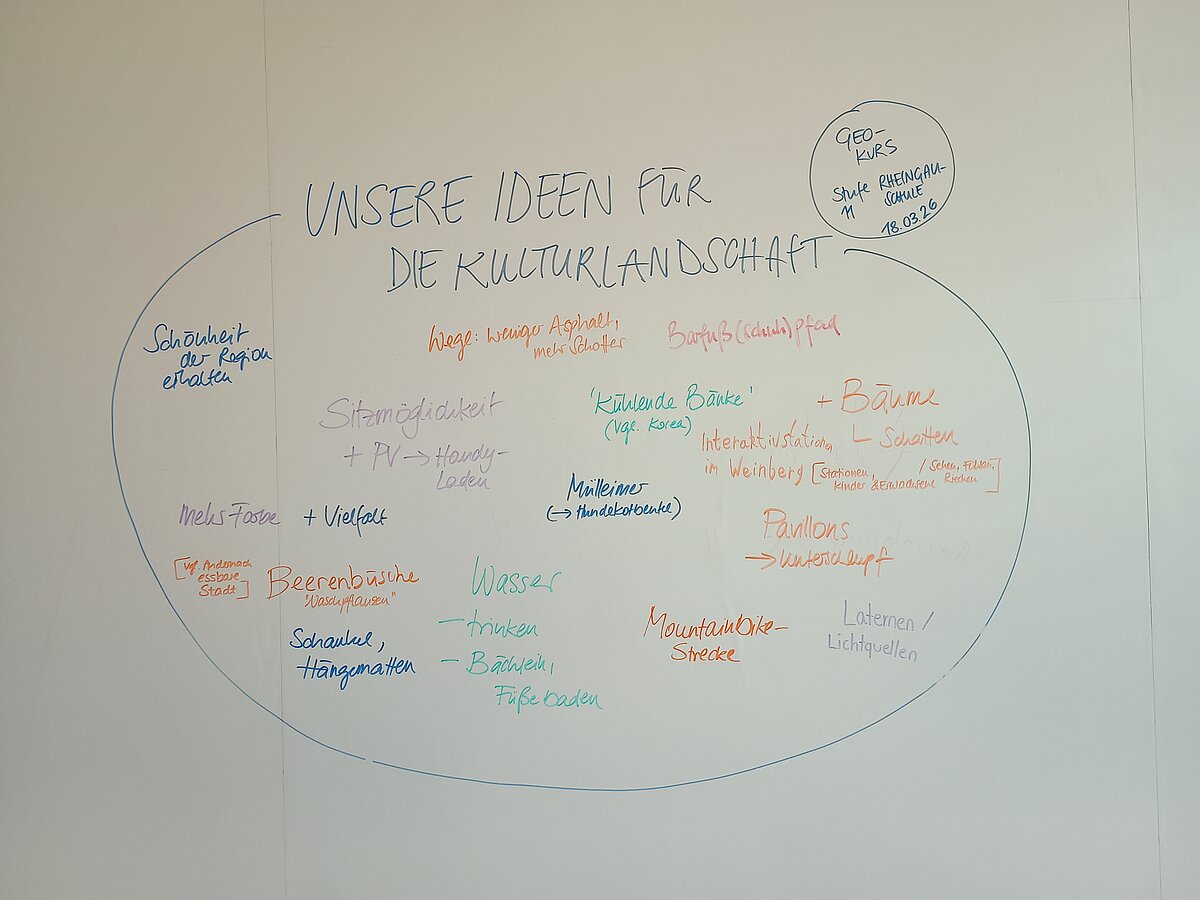 GEO-
KURS
Stufe RHEINGAU-
11 SCHULE
18.03.26
UNSERE IDEEN FÜR
DIE KULTURLANDSCHAFT
Schönheit
der Region
erhalten
Wege: weniger Asphalt,
mehr Schotter
Barfuß(schuh)pfad
Sitzmöglichkeit
+ PV → Handy-
Laden
'Kühlende Bänke'
(vgl. Korea)
+ Bäume
Schatten
Interaktivstationen
im Weinberg [Stationen, / Sehen, Fühlen,
Kinder & Erwachsene Riechen]
Mülleimer
(→ Hundekotbeutel)
Mehr Farbe + Vielfalt
Pavillons
→ Unterschlupf
[vgl. Andernach
essbare
Stadt]
Beerenbüsche
"Naschpflanzen"
Wasser
- trinken
- Bächlein,
Füße baden
Schaukel,
Hängematten
Mountainbike-
Strecke
Laternen /
Lichtquellen